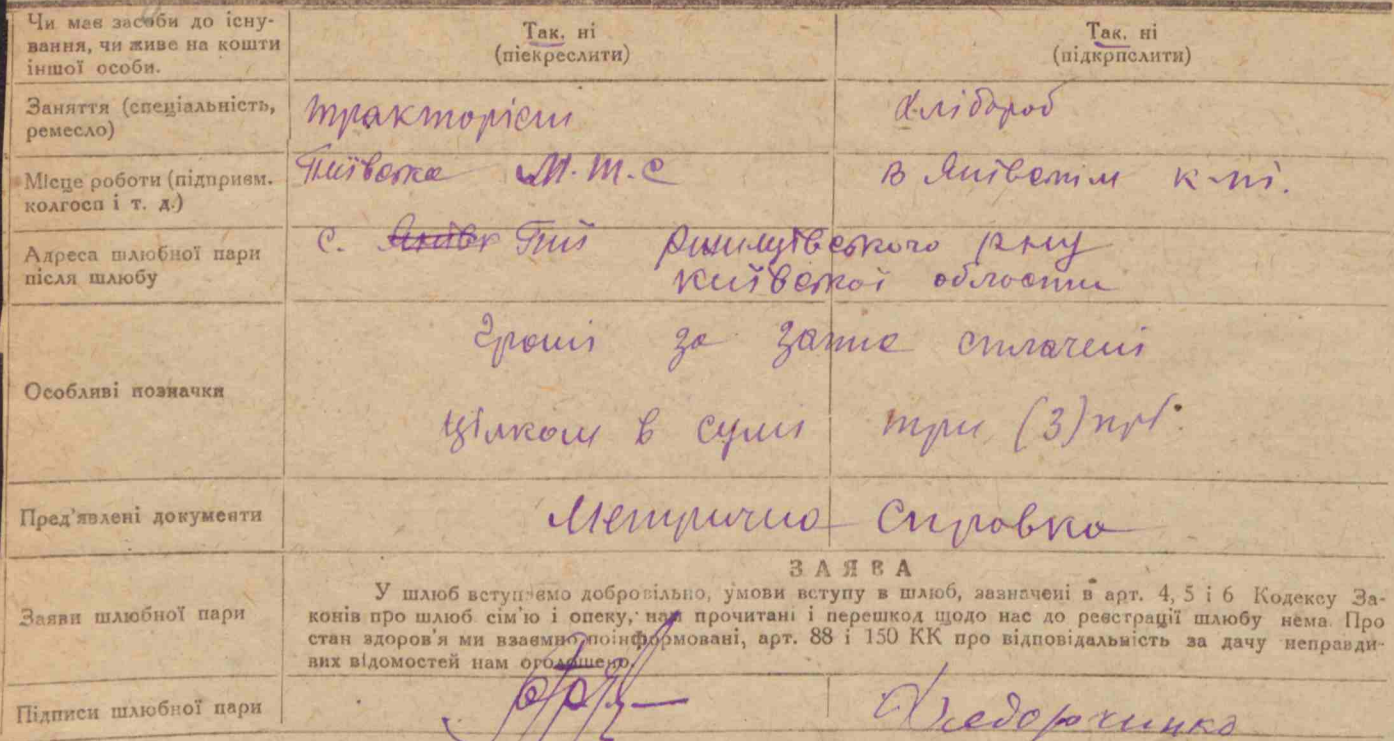 Чи має засоби до існу-
вання, чи живе на кошти
іншої особи.
Так, ні
(піекреслити)
Так, ні
(підкрпслити)
Заняття (спеціальність,
ремесло)
тракторіст
Хлібороб
Місце роботи (підприєм.
колгосп і т. д.)
Пиївска М.Т.С
в к-пі.
Адреса шлюбної пари
після шлюбу
с. Пиї ржищівського р-ну
київської области
Особливі позначки
Гроші за сплачені
цілком в сумі три (3) крб.
Пред'явлені документи
Метрична Справка
Заяви шлюбної пари
ЗАЯВА
У шлюб вступаємо добровільно, умови вступу в шлюб, зазначені в арт. 4, 5 і 6 Кодексу За-
конів про шлюб сім'ю і опеку, нам прочитані і перешкод щодо нас до реєстрації шлюбу нема. Про
стан здоров'я ми взаємно поінформовані, арт. 88 і 150 КК про відповідальність за дачу неправди-
вих відомостей нам оголошено.
Підписи шлюбної пари